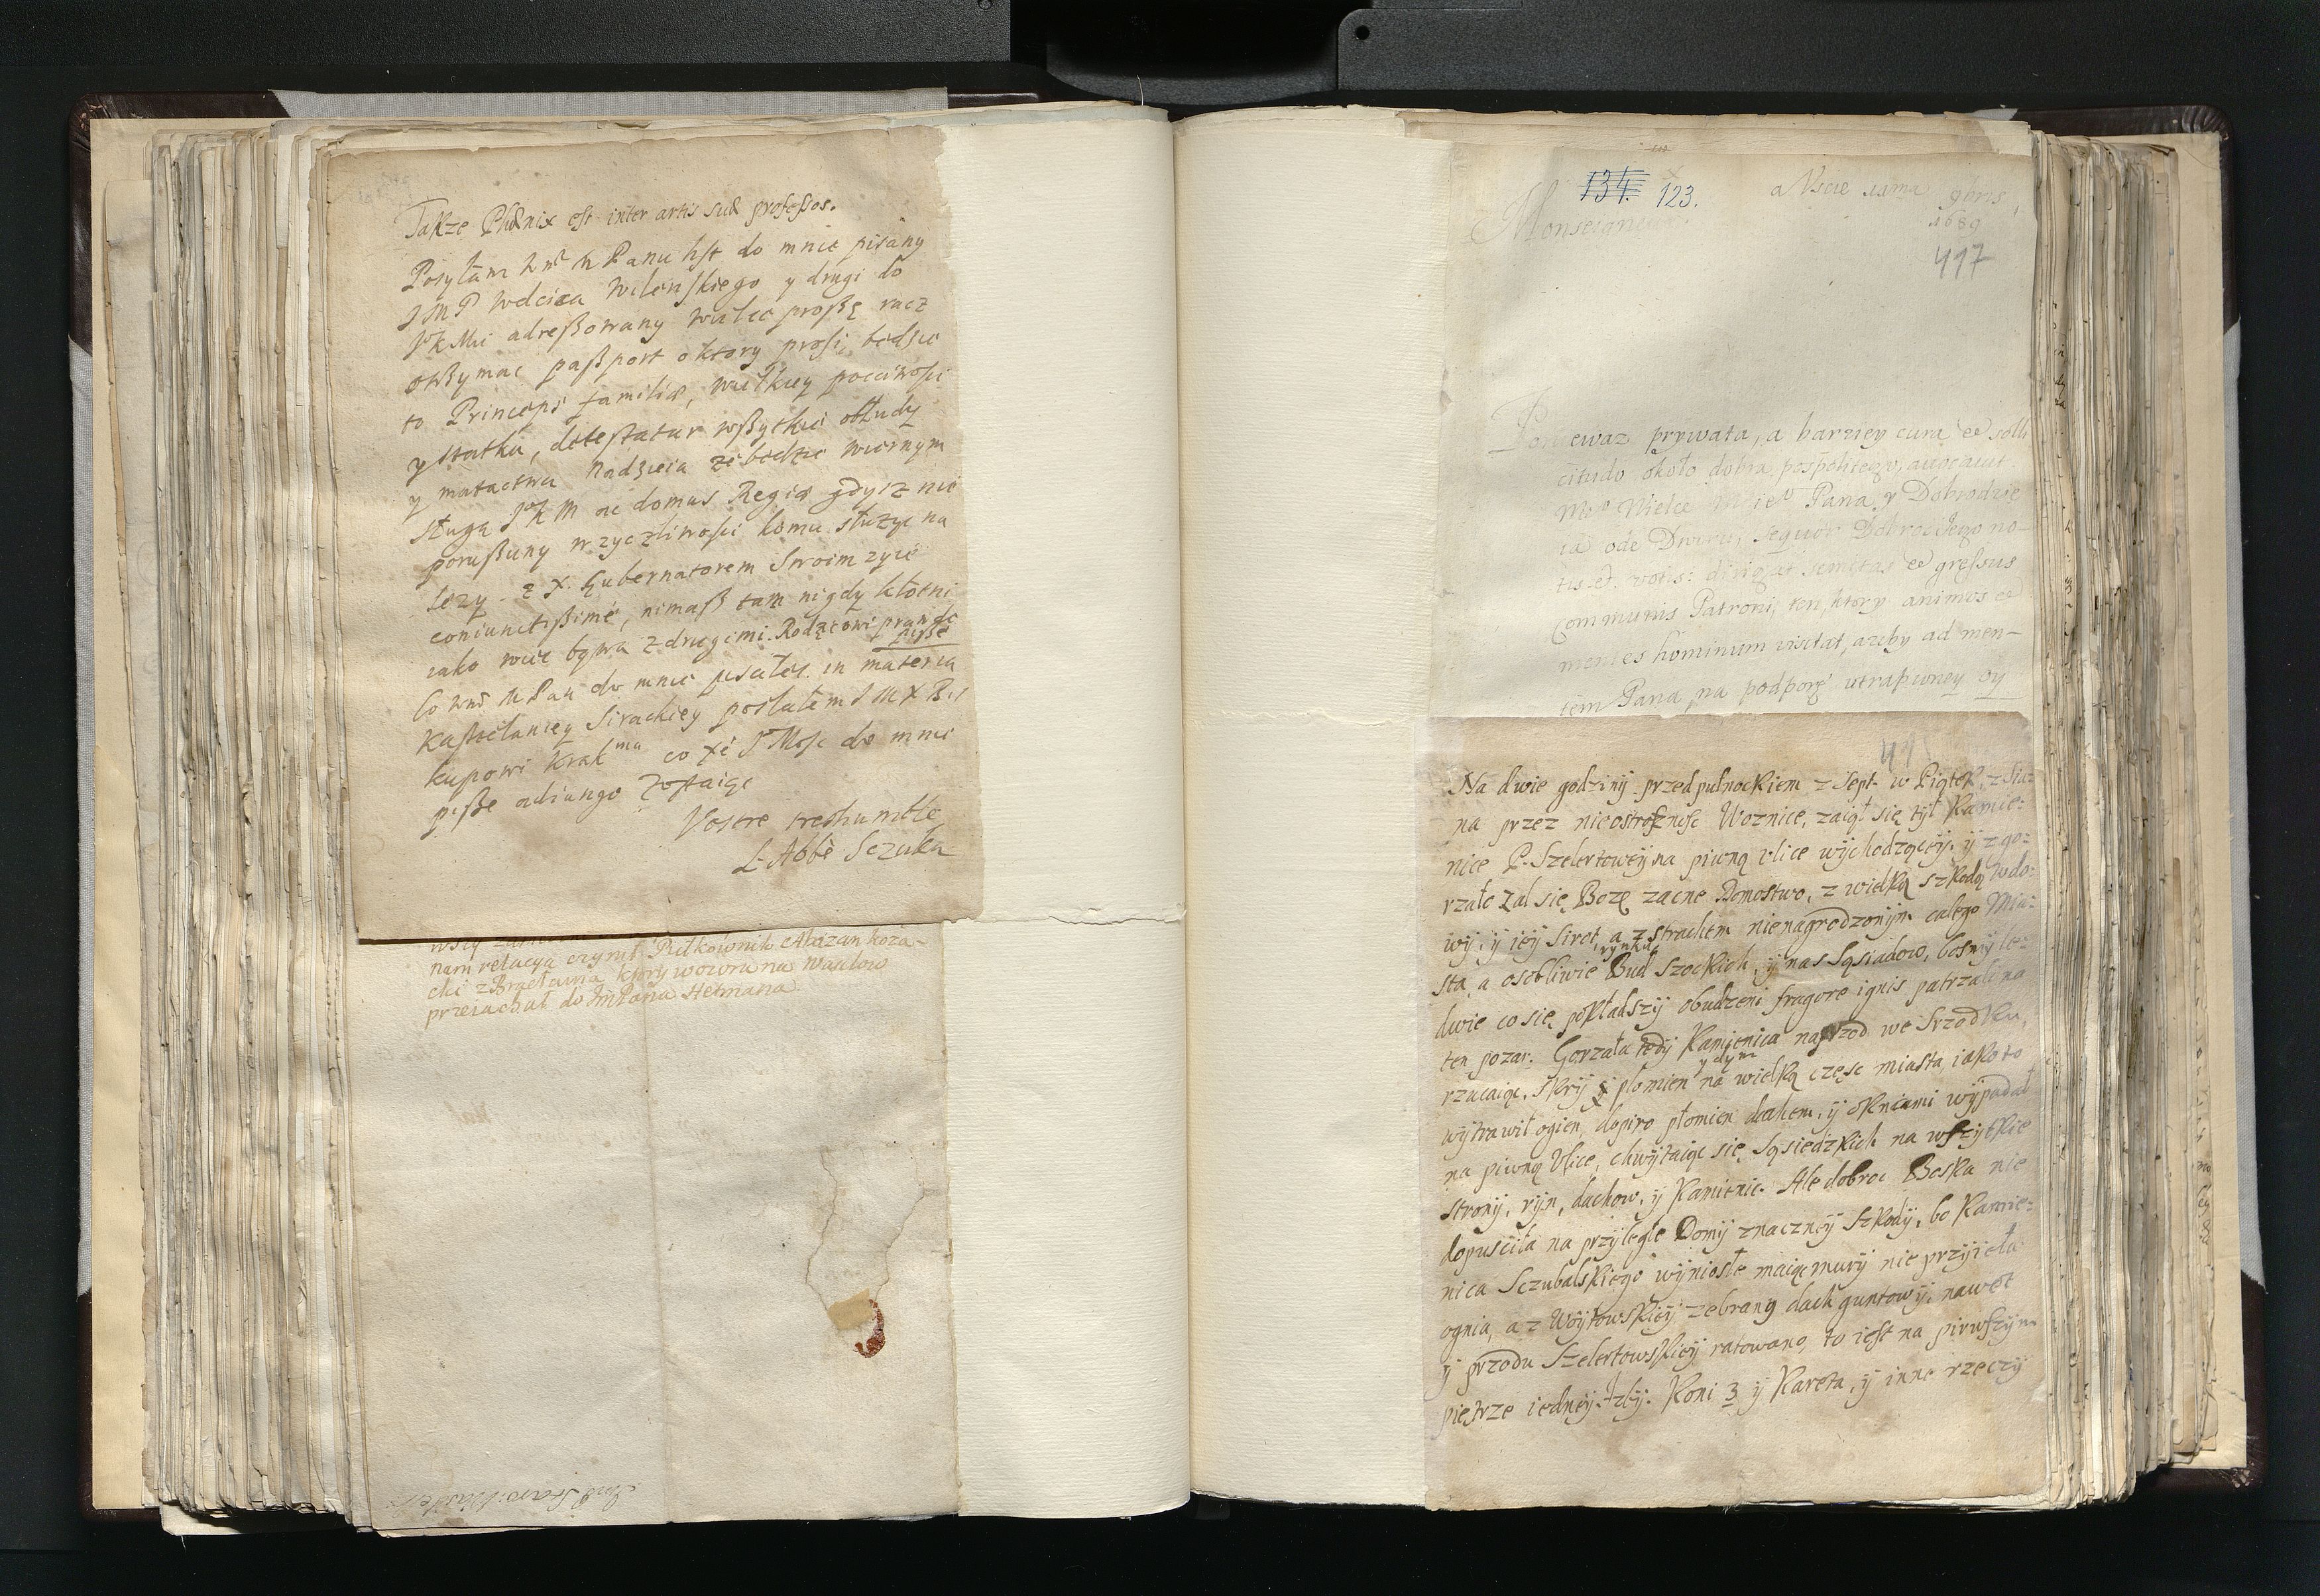 Takze Phœnix est inter artis suæ professos.
Posyłam Panu list do mnie pisany
J M P Wdcica Wilenskiego y drugi do
JKMci adreßowany wielce proßę racz
otrßymac paßport o ktory prosi, bedzie
to Princeps familiæ, wielkiey poczciwosci
y statku, detestatur wßytkie obłudy
y matactwa Nadzieia że bedzie wiernym
sługą J K M ac domus Regiæ gdysz nie
porußony w zyczliwosci komu słuzyc na
lezy. z X. Gubernatorem Swoim zyie
coniunctißime, nimaß tam nigdy kłotni
iako wiec bywa z drugiemi. Rodzicowi prawdę
pißę
Co M Pan do mnie pisałes. in materia
Kasztelaniey Sirackiey posłałem J M X Bis
kupowi Krakmu co Xe J Mosc do mnie
piße adiungo Zostaiąc
Vostre treshumble
L'Abbè Sczuka
nam relacya czynił Pułkownik Abazan koza-
cki z Bracławia, ktory wczora na Pawłow
przeiachał do JmPana Hetmana
134. 123.
a Uscie 10ma 9bris
1689
417
Monseigneur
Poniewaz prywata, a barziey cura et solli
citudo około dobra pospolitego, avocavit
Mego Wielce Pana y Dobrodzie
ia ode Dworu, sequor Dobroc Jego no-
tis et votis: dirigat semitas et gressus
Communis Patroni, ten, ktory animos et
mentes hominum visitat, azeby ad men-
tem Pana, na podporę utrapioney oy
Na dwie godziny przed pułnockiem z Sept. w Piątek, z
na przez nieostrożnosc Woznice, zaiął się tył Kamie:
nice P. Szelertowey na piwną ulice wychodzącey. y zgo:
rzałe Zal się Boze zacne Domostwo, z wielką szkodą Wdo:
wy, y iey Sirot, a z strachem nienagrodzonym całego Mia:
rynku
sta, a osobliwie Bud Szockich, y nas Sąsiadow, bosmy le:
dwie co się pokładszy obudzeni fragore ignis patrzali na
ten pozar. Gorzała tedy Kamienica naprzod we Srzodku,
y dym
rzucaiąc, skry y płomien na wielką częsc miasta, iako to
wytrawił ogien, dopiro płomien dachem, y oknami wypadał
na piwną Ulice, chwytaiąc się Sąsiedzkich na wszytkie
strony, ryn, dachow, y Kamienic. Ale dobroc Boska nie
dopusciła na przyległe Domy znaczney Szkody, bo Kamie:
nica Sczubalskiego wyniosłe maiąc mury nie przyięła
ognia, a z Woytowskiey zebrany dach guntowy. nawet
y przodu Szelertowskiey ratowano, to iest na pirwszym
piętrze iedney Izby. Koni 3 y Kareta, y inne rzeczy